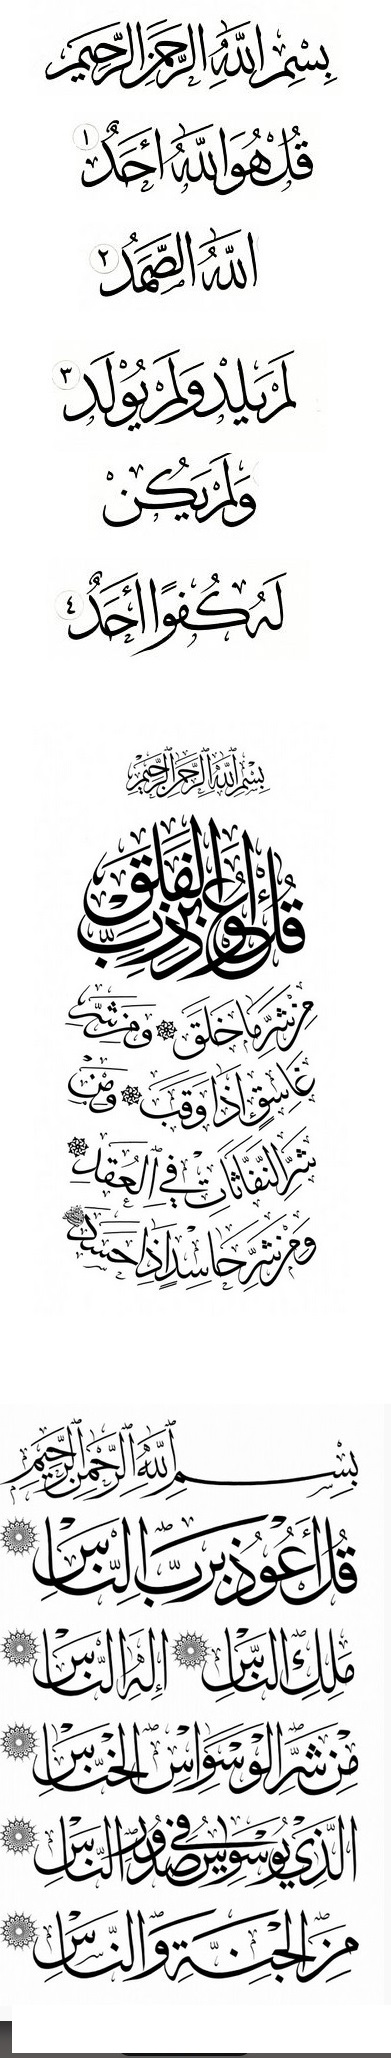 بِسْمِ اللَّهِ الرَّحْمَٰنِ الرَّحِيمِ
قُلْ هُوَ اللَّهُ أَحَدٌ ١
اللَّهُ الصَّمَدُ ٢
لَمْ يَلِدْ وَلَمْ يُولَدْ ٣
وَلَمْ يَكُنْ
لَهُ كُفُوًا أَحَدٌ ٤
بِسْمِ اللَّهِ الرَّحْمَٰنِ الرَّحِيمِ
قُلْ أَعُوذُ بِرَبِّ الْفَلَقِ
مِنْ شَرِّ مَا خَلَقَ وَمِنْ شَرِّ
غَاسِقٍ إِذَا وَقَبَ وَمِنْ
شَرِّ النَّفَّاثَاتِ فِي الْعُقَدِ
وَمِنْ شَرِّ حَاسِدٍ إِذَا حَسَدَ
بِسْمِ اللَّهِ الرَّحْمَٰنِ الرَّحِيمِ
قُلْ أَعُوذُ بِرَبِّ النَّاسِ
مَلِكِ النَّاسِ إِلَٰهِ النَّاسِ
مِنْ شَرِّ الْوَسْوَاسِ الْخَنَّاسِ
الَّذِي يُوَسْوِسُ فِي صُدُورِ النَّاسِ
مِنَ الْجِنَّةِ وَالنَّاسِ